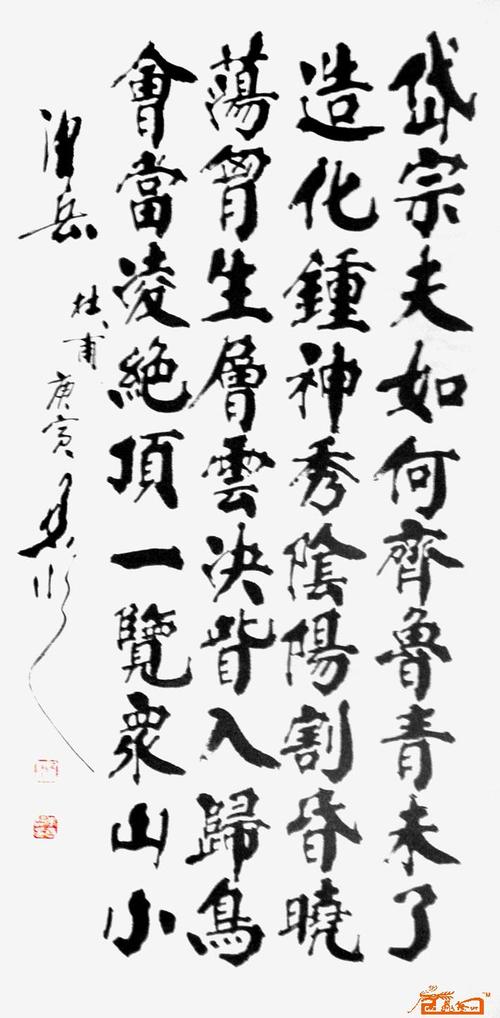 岱宗夫如何齊魯青未了
造化鍾神秀陰陽割昏曉
蕩胷生層雲決眥入歸鳥
會當凌絕頂一覽衆山小
望岳
杜甫庚寅